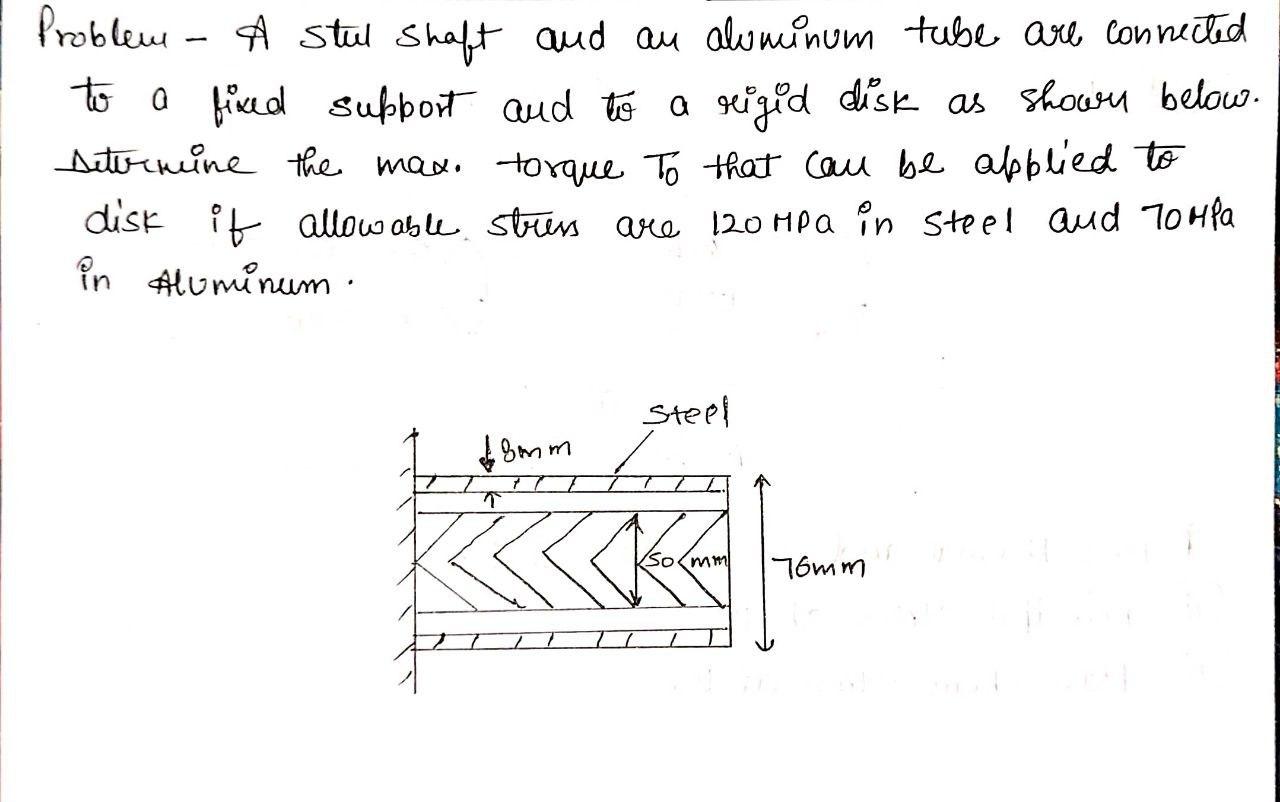 Problem - A steel shaft and an aluminum tube are connected
to a fixed support and to a rigid disk as shown below.
Determine the max. torque To that can be applied to
disk if allowable stress are 120 MPa in steel and 70 MPa
in Aluminum.
Steel
8mm
50 mm
76mm